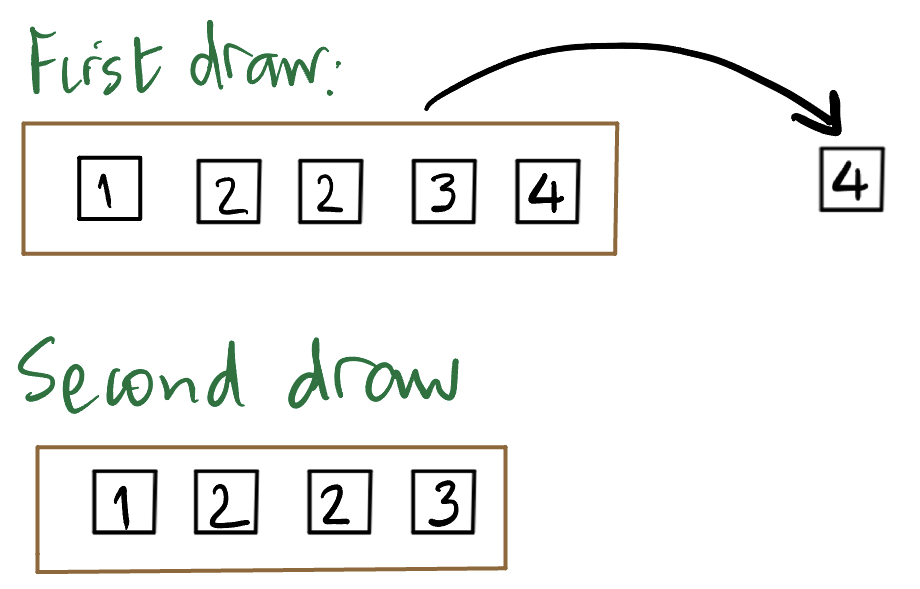 First draw:
1 2 2 3 4
4
Second draw
1 2 2 3